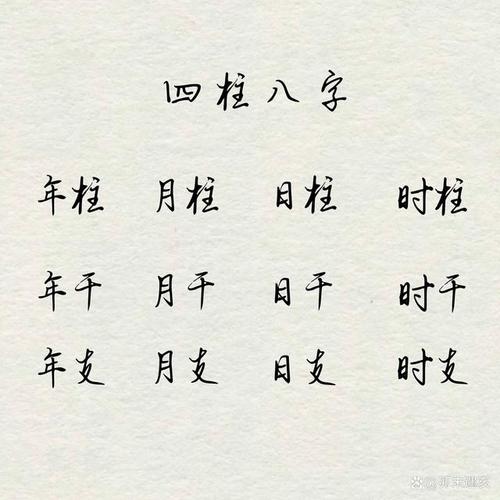 四柱八字
年柱 月柱 日柱 时柱
年干 月干 日干 时干
年支 月支 日支 时支